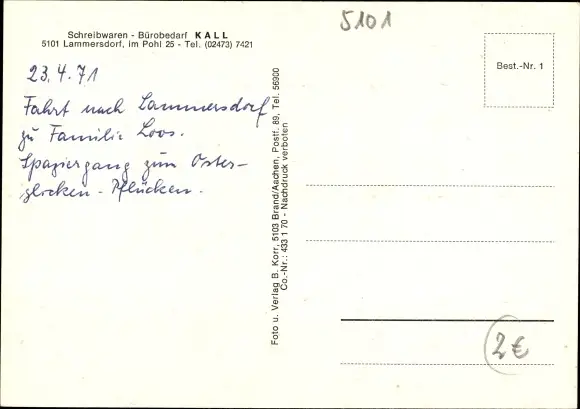 5101
Schreibwaren - Bürobedarf KALL
5101 Lammersdorf, im Pohl 25 - Tel. (02473) 7421
Best.-Nr. 1
23.4.71
Fahrt nach Lammersdorf
zu Familie Loos.
Spaziergang zum Oster-
glocken-Pflücken.
Foto u. Verlag B. Korr, 5103 Brand/Aachen, Postf. 89, Tel. 56900
Co.-Nr.: 433 1 70 - Nachdruck verboten
2€